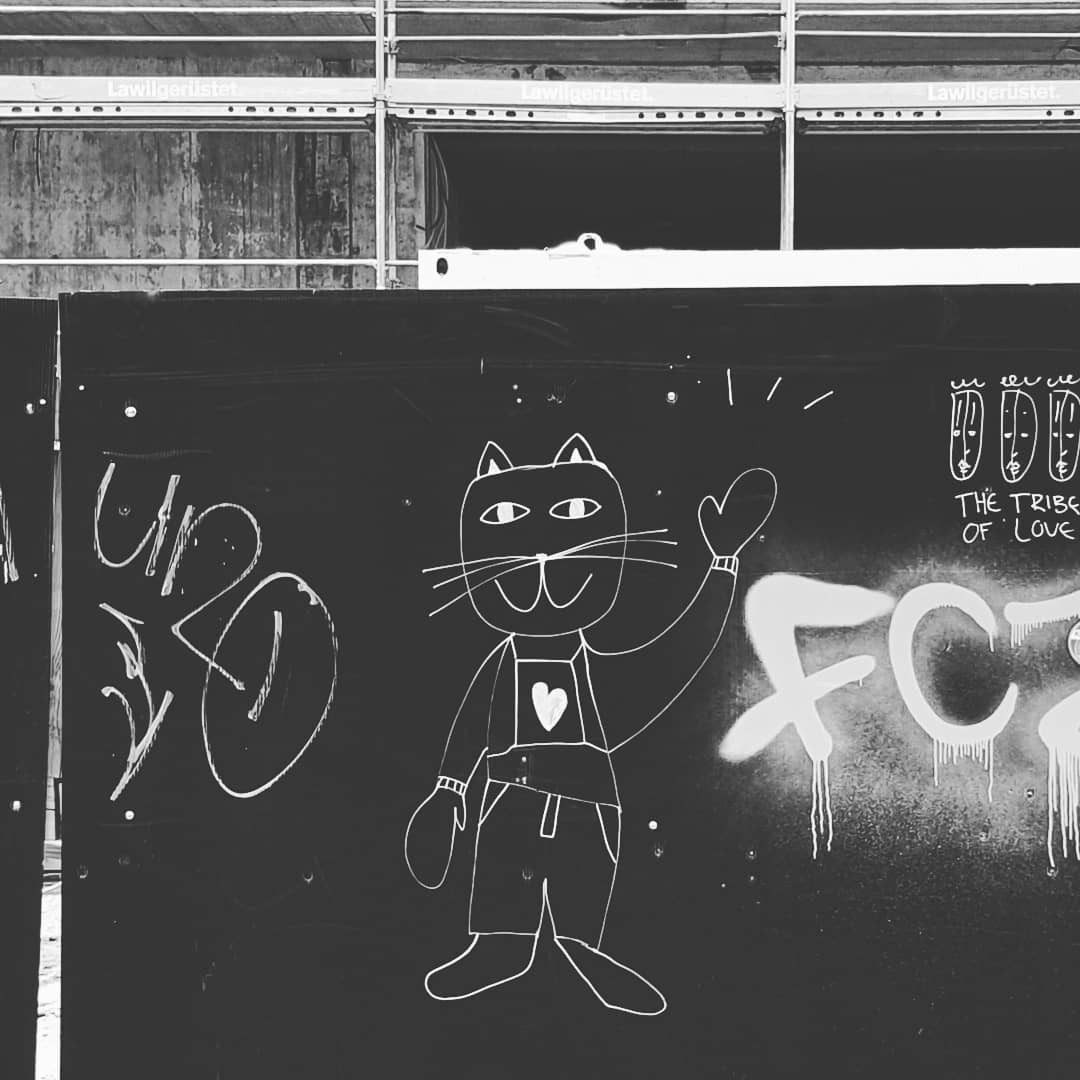 Lawilgerüstet.
Lawilgerüstet.
Lawilgerüstet.
THE TRIBE
OF LOVE
FCZ